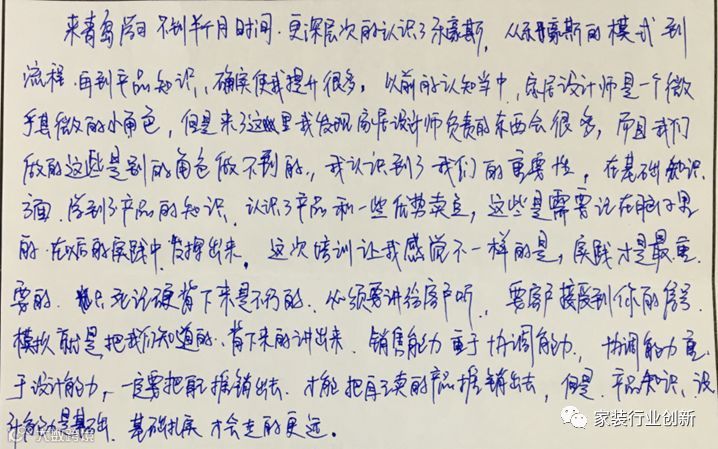 来青岛学习不到半个月时间.更深层次的认识了东豪斯,从东豪斯的模式到
流程.再到产品知识、确实使我提升很多.以前的认知当中,家居设计师是一个微
乎其微的小角色,但是来了这里我发现家居设计师负责的东西会很多,而且我们
做的这些是别的角色做不到的,我认识到了我们的重要性.在基础知识
方面.学到了产品的知识.认识了产品和一些优势卖点,这些是需要记在脑子里
的.在以后的实践中发挥出来.这次培训让我感觉不一样的是,实践才是最重
要的.死记硬背下来是不行的.必须要讲给客户听,要客户接受到你的信号.
模拟就是把我们知道的、背下来的讲出来.销售能力重于协调能力,协调能力重
于设计能力,一定要把自己推销出去.才能把再读的产品推销出去,但是.产品知识、设
计能力是基础.基础扎实才会走的更远。
大数跨境
家装行业创新